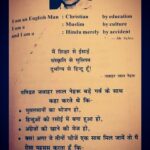 I am an English Man : Christian by education
and
I am a : Muslim by culture
and
I am a : Hindu merely by accident
मैं शिक्षा से ईसाई
संस्कृति से मुस्लिम
दुर्भाग्य से हिन्दू हूँ।
जवाहर लाल नेहरू
पण्डित जवाहर लाल नेहरू बड़े गर्व के साथ
कहा करते थे कि-
मुसलमानों का भोजन हो,
हिन्दुओं की रसोई में बना हुआ हो,
अंग्रेजों की खाने की मेज हो,
अगर ये तीनों चीजें एक साथ मिल जायें तो मैं